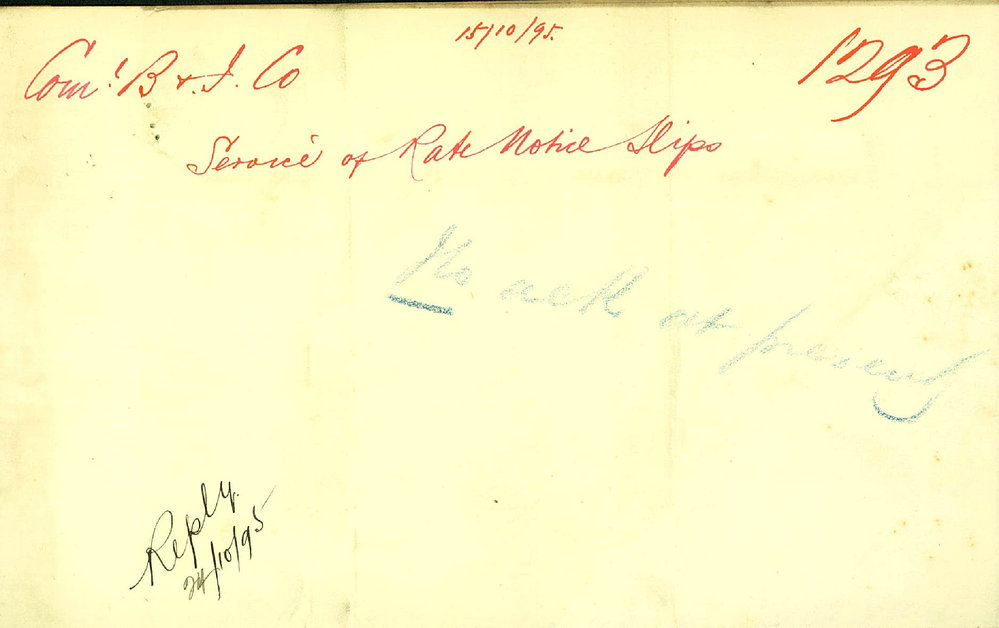 15/10/95.
Com! B & I. Co
1293
Service of Rate Notice Slips
No ack at present
Reply.
24/10/95